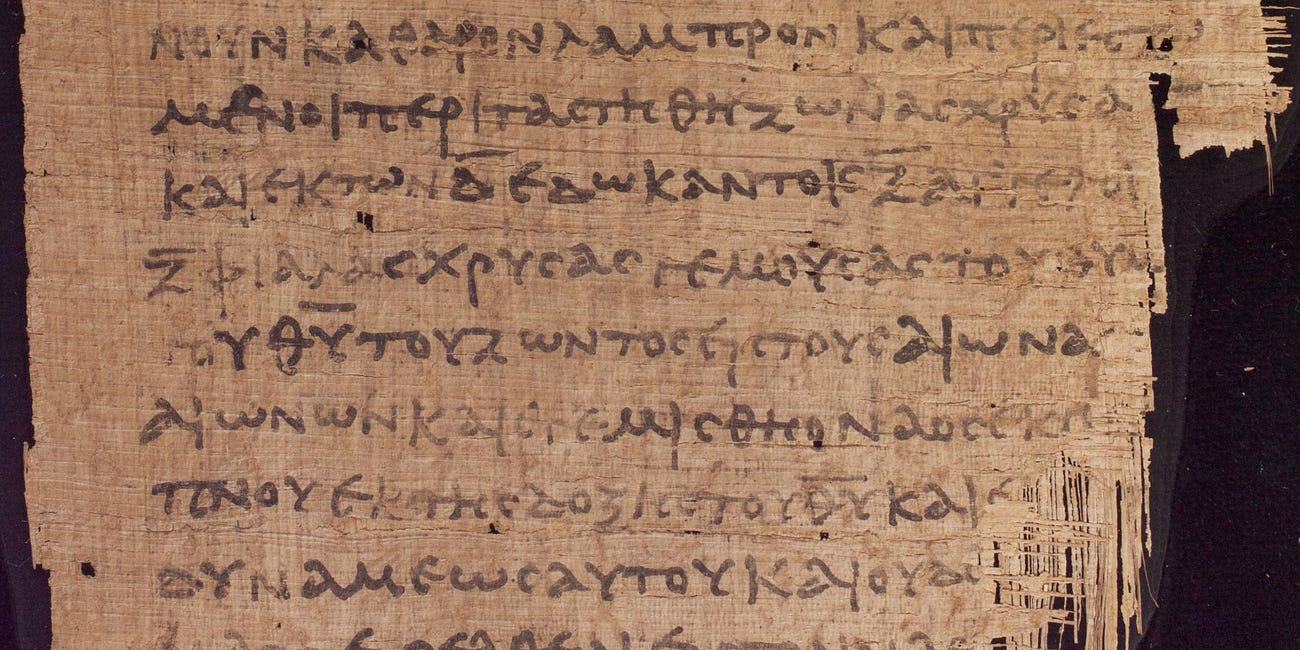 ΝΟΥΝΚΑΘΑΡΟΝΛΑΜΠΡΟΝΚΑΙΠΕΡΙΕ
ΜΕΝΟΙΠΕΡΙΤΑϹΤΗΘΗΖΩΝΑϹΧΡΥϹΑ
ΚΑΙΕΚΤΩΝΔ̅ΕΔΩΚΑΝΤΟΙϹΖ̅ΑΓΓΕΛΟΙ
Ζ̅ΦΙΑΛΑϹΧΡΥϹΑϹΓΕΜΟΥϹΑϹΤΟΥΘΥΜ
ΤΟΥΘ̅Υ̅ΤΟΥΖΩΝΤΟϹΕΙϹΤΟΥϹΑΙΩΝΑϹ
ΑΙΩΝΩΝΚΑΙΕΓΕΜΙϹΘΗΟΝΑΟϹΕΚΚ
ΠΝΟΥΕΚΤΗϹΔΟΞΗϹΤΟΥΘ̅Υ̅ΚΑΙΕ
ΔΥΝΑΜΕΩϹΑΥΤΟΥΚΑΙΟΥΔΕ